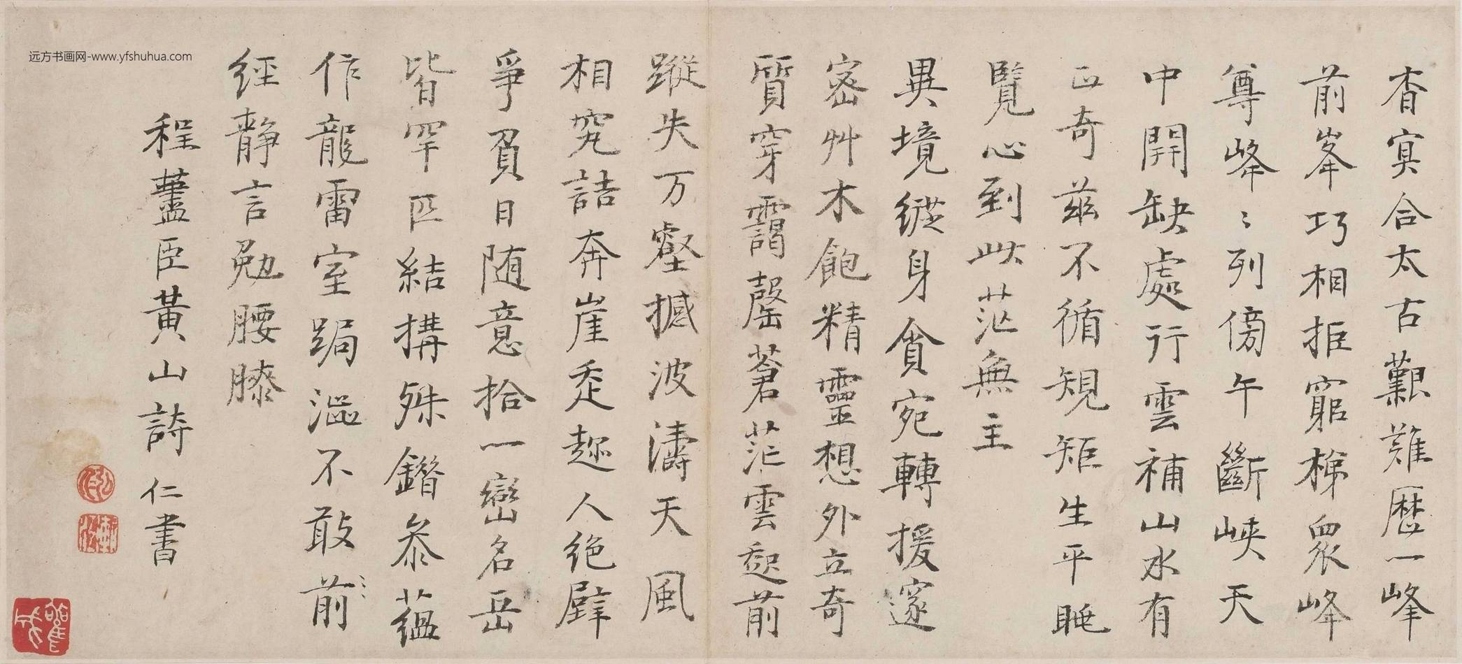 杳冥合太古艱難歷一峰
前峯巧相拒窮梯眾峰
尊峰〻列傍午斷峽天
中開缺處行雲補山水有
正奇茲不循規矩生平睡
覽心到此茫無主
異境縱身貪宛轉援邃
密艸木飽精靈想外立奇
質穿靄罄蒼茫雲起前
蹤失万壑撼波濤天風
相究詰奔崖歪趂人絕壁
爭負日随意拾一巒名岳
皆罕匹結搆殊鐕叅蘊
作龍雷室跼澀不敢前〻
經靜言勉腰膝
程藎臣黃山詩 仁書
远方书画网-www.yfshuhua.com